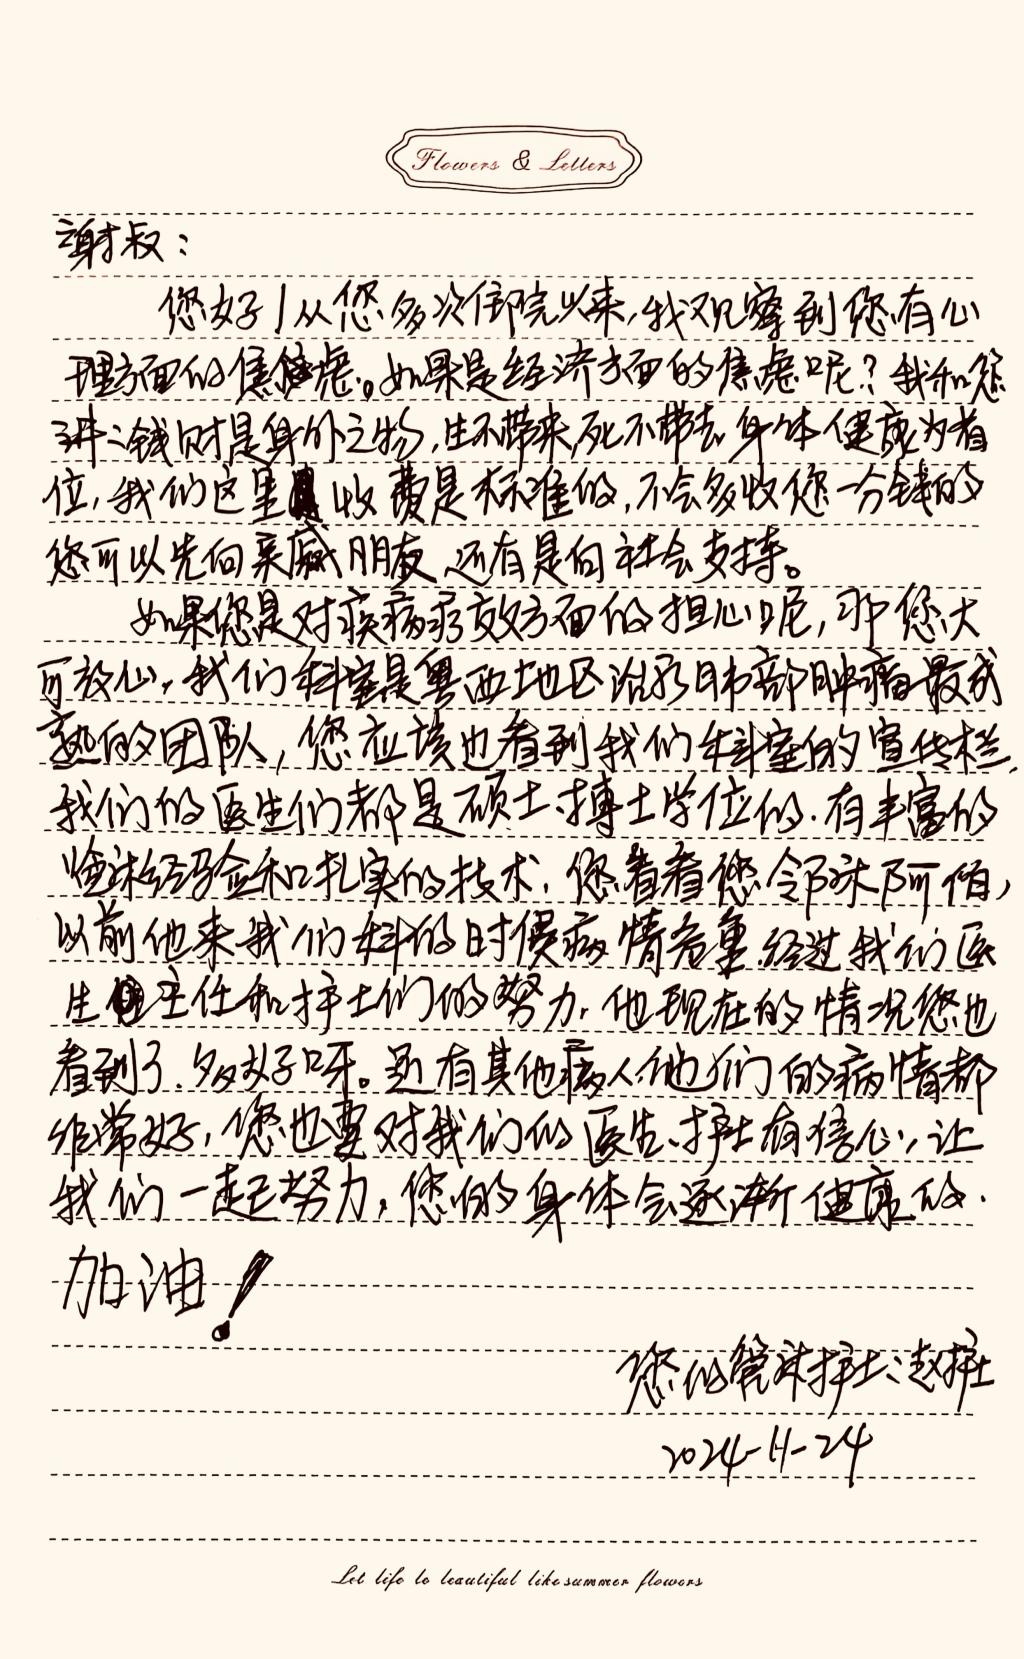 Flowers & Letters
谢叔：
您好！从您多次住院以来，我观察到您有心
理方面的焦虑。如果是经济方面的焦虑呢？我和您
讲：钱财是身外之物，生不带来，死不带去，身体健康为首
位，我们这里收费是标准的，不会多收您一分钱的
您可以先向亲戚朋友，还有是向社会支持。
如果您是对疾病疗效方面的担心呢，那您大
可放心，我们科室是粤西地区治疗肺部肿瘤最成
熟的团队，您应该也看到我们科室的宣传栏，
我们的医生们都是硕士、博士学位的．有丰富的
临床经验和扎实的技术，您看看您邻床阿伯，
以前他来我们科的时候病情危重，经过我们医
生主任和护士们的努力，他现在的情况您也
看到了，多好呀。还有其他病人，他们的病情都
非常好，您也要对我们的医生、护士有信心，让
我们一起努力，您的身体会逐渐健康的．
加油！
您的管床护士：赵护士
2024-11-24
Let life be beautiful like summer flowers